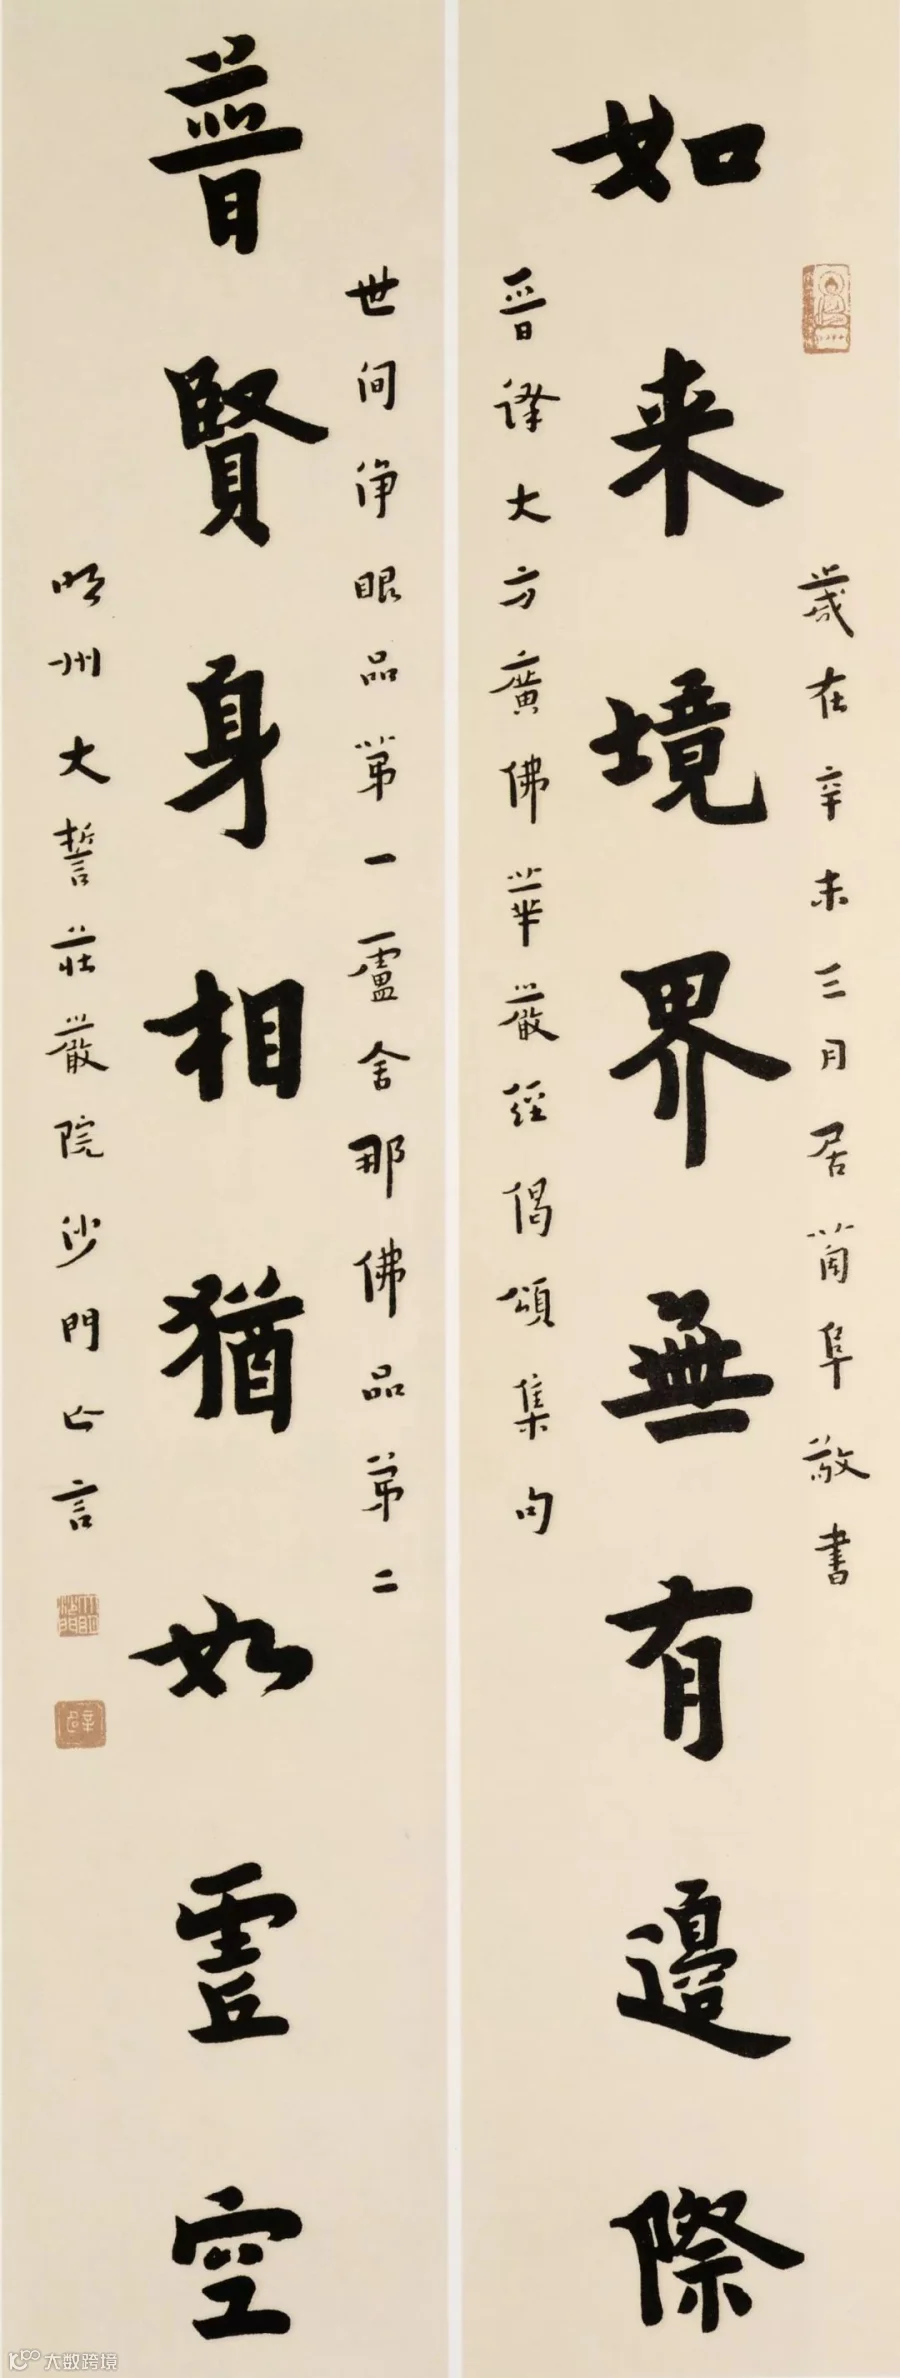 歲在辛未三月居蔔阜敬書
如来境界無有邊際
晉譯大方廣佛華嚴經偈頌集句
世间淨眼品第一盧舍那佛品第二
普賢身相猶如虛空
明州大誓莊嚴院沙門亡言
大数跨境